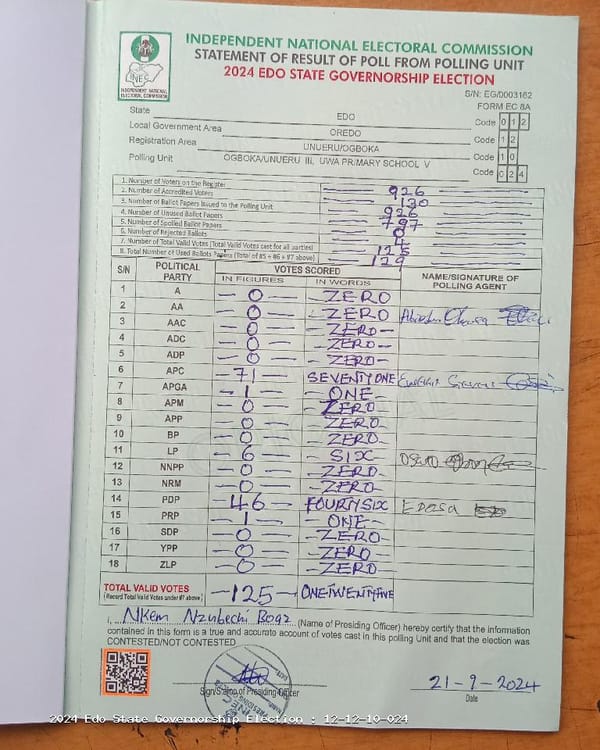 INDEPENDENT NATIONAL ELECTORAL COMMISSION
STATEMENT OF RESULT OF POLL FROM POLLING UNIT
2024 EDO STATE GOVERNORSHIP ELECTION
INEC
INDEPENDENT NATIONAL
ELECTORAL COMMISSION
S/N: EG/0003162
FORM EC 8A
State EDO Code 0 1 2
Local Government Area OREDO Code 1 2
Registration Area UNUERU/OGBOKA Code 1 0
Polling Unit OGBOKA/UNUERU III, UWA PRIMARY SCHOOL V Code 0 2 4
1. Number of Voters on the Register 926
2. Number of Accredited Voters 130
3. Number of Ballot Papers Issued to the Polling Unit 926
4. Number of Unused Ballot Papers 797
5. Number of Spoiled Ballot Papers 0
6. Number of Rejected Ballots 4
7. Number of Total Valid Votes (Total Valid Votes cast for all parties) 125
8. Total Number of Used Ballots Papers (Total of #5 + #6 + #7 above) 129
S/N POLITICAL PARTY VOTES SCORED NAME/SIGNATURE OF POLLING AGENT
IN FIGURES IN WORDS
1 A -0- -ZERO
2 AA -0- -ZERO
3 AAC -0- -ZERO-
4 ADC -0- -ZERO-
5 ADP -0- -ZERO-
6 APC -71- SEVENTYONE
7 APGA -1- -ONE-
8 APM -0- ZERO
9 APP -0- -ZERO
10 BP -0- -ZERO
11 LP -6- -SIX
12 NNPP -0- -ZERO-
13 NRM -0- -ZERO-
14 PDP -46- FOURTYSIX
15 PRP -1- -ONE-
16 SDP -0- -ZERO-
17 YPP -0- -ZERO-
18 ZLP -0- -ZERO-
TOTAL VALID VOTES -125- ONETWENTYFIVE
(Record Total Valid Votes under #7 above)
I, Nkem Nzubechi (Name of Presiding Officer) hereby certify that the information
contained in this form is a true and accurate account of votes cast in this polling Unit and that the election was
CONTESTED/NOT CONTESTED
Sign/Stamp of Presiding Officer
21-9-2024
Date
2024 Edo State Governorship Election : 12-12-10-024